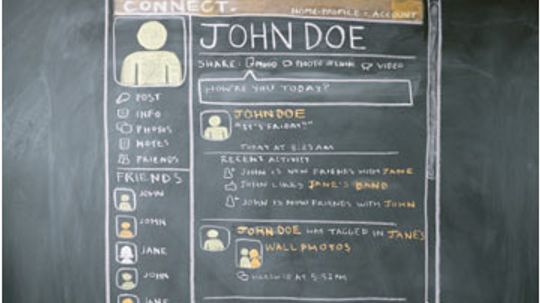 CONNECT
HOME-PROFILE-ACCOUNT
JOHN DOE
SHARE: MOOD PHOTO LINK VIDEO
HOW'RE YOU TODAY?
POST
INFO
PHOTOS
NOTES
FRIENDS
FRIENDS
JOHN
JOHN
JANE
JOHN
JANE
JOHN DOE
"IT'S FRIDAY!"
TODAY AT 8:23AM
RECENT ACTIVITY
JOHN IS NEW FRIENDS WITH JANE
JOHN LIKES JANE'S BAND
JOHN IS NOW FRIENDS WITH JOHN
JOHN DOE HAS TAGGED IN JANE'S
WALL PHOTOS
AT 5:52PM